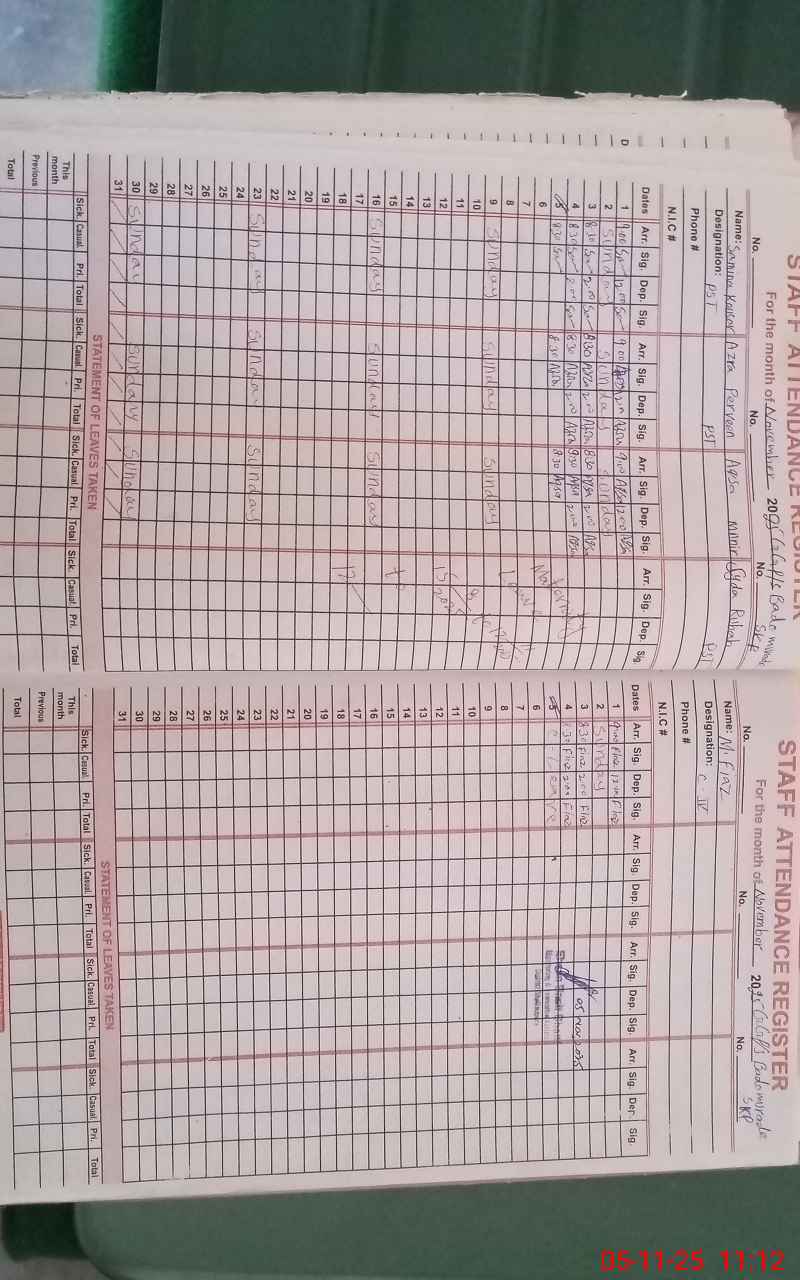 STAFF ATTENDANCE REGISTER
For the month of November 2025 G.G.P/S Bado murade
SKP
No. No. No.
Name: Samina Kausar Azra Perveen Aqsa Munir Syda Rubab
Designation: PST PST PST
Phone #
N.I.C #
Dates Arr. Sig. Dep. Sig. Arr. Sig. Dep. Sig. Arr. Sig. Dep. Sig. Arr. Sig. Dep. Sig.
1 9:00 12:00 9:00 Azra 9:00 Aqsa 12:00 Aqsa
2 Sunday Sunday Sunday
3 8:30 2:00 8:30 Azra 2:00 Azra 8:30 Aqsa 2:00 Aqsa
4 8:30 2:00 8:30 Azra 2:00 Azra 8:30 Aqsa 2:00 Aqsa
05 8:30 8:30 Azra 8:30 Aqsa
6
7
8
9 Sunday Sunday Sunday
10
11
12
13
14
15
16 Sunday Sunday Sunday
17
18
19
20
21
22
23 Sunday Sunday Sunday
24
25
26
27
28
29
30 Sunday Sunday Sunday
31
Maternity
Leave
to
STATEMENT OF LEAVES TAKEN
Sick. Casual Pri. Total Sick. Casual Pri. Total Sick. Casual Pri. Total Sick. Casual Pri. Total
This month
Previous
Total
STAFF ATTENDANCE REGISTER
For the month of November 2025 G.G.P/S Bado murade
SKP
No. No. No.
Name: M. Fiaz
Designation: C-IV
Phone #
N.I.C #
Dates Arr. Sig. Dep. Sig. Arr. Sig. Dep. Sig. Arr. Sig. Dep. Sig. Arr. Sig. Dep. Sig.
1 9:00 Fiaz 12:00 Fiaz
2 Sunday
3 8:30 Fiaz 2:00 Fiaz
4 8:30 Fiaz 2:00 Fiaz
05 C-Leave
05 Nov 2025
6
7
8
9
10
11
12
13
14
15
16
17
18
19
20
21
22
23
24
25
26
27
28
29
30
31
STATEMENT OF LEAVES TAKEN
Sick. Casual Pri. Total Sick. Casual Pri. Total Sick. Casual Pri. Total Sick. Casual Pri. Total
This month
Previous
Total
05-11-25 11:12